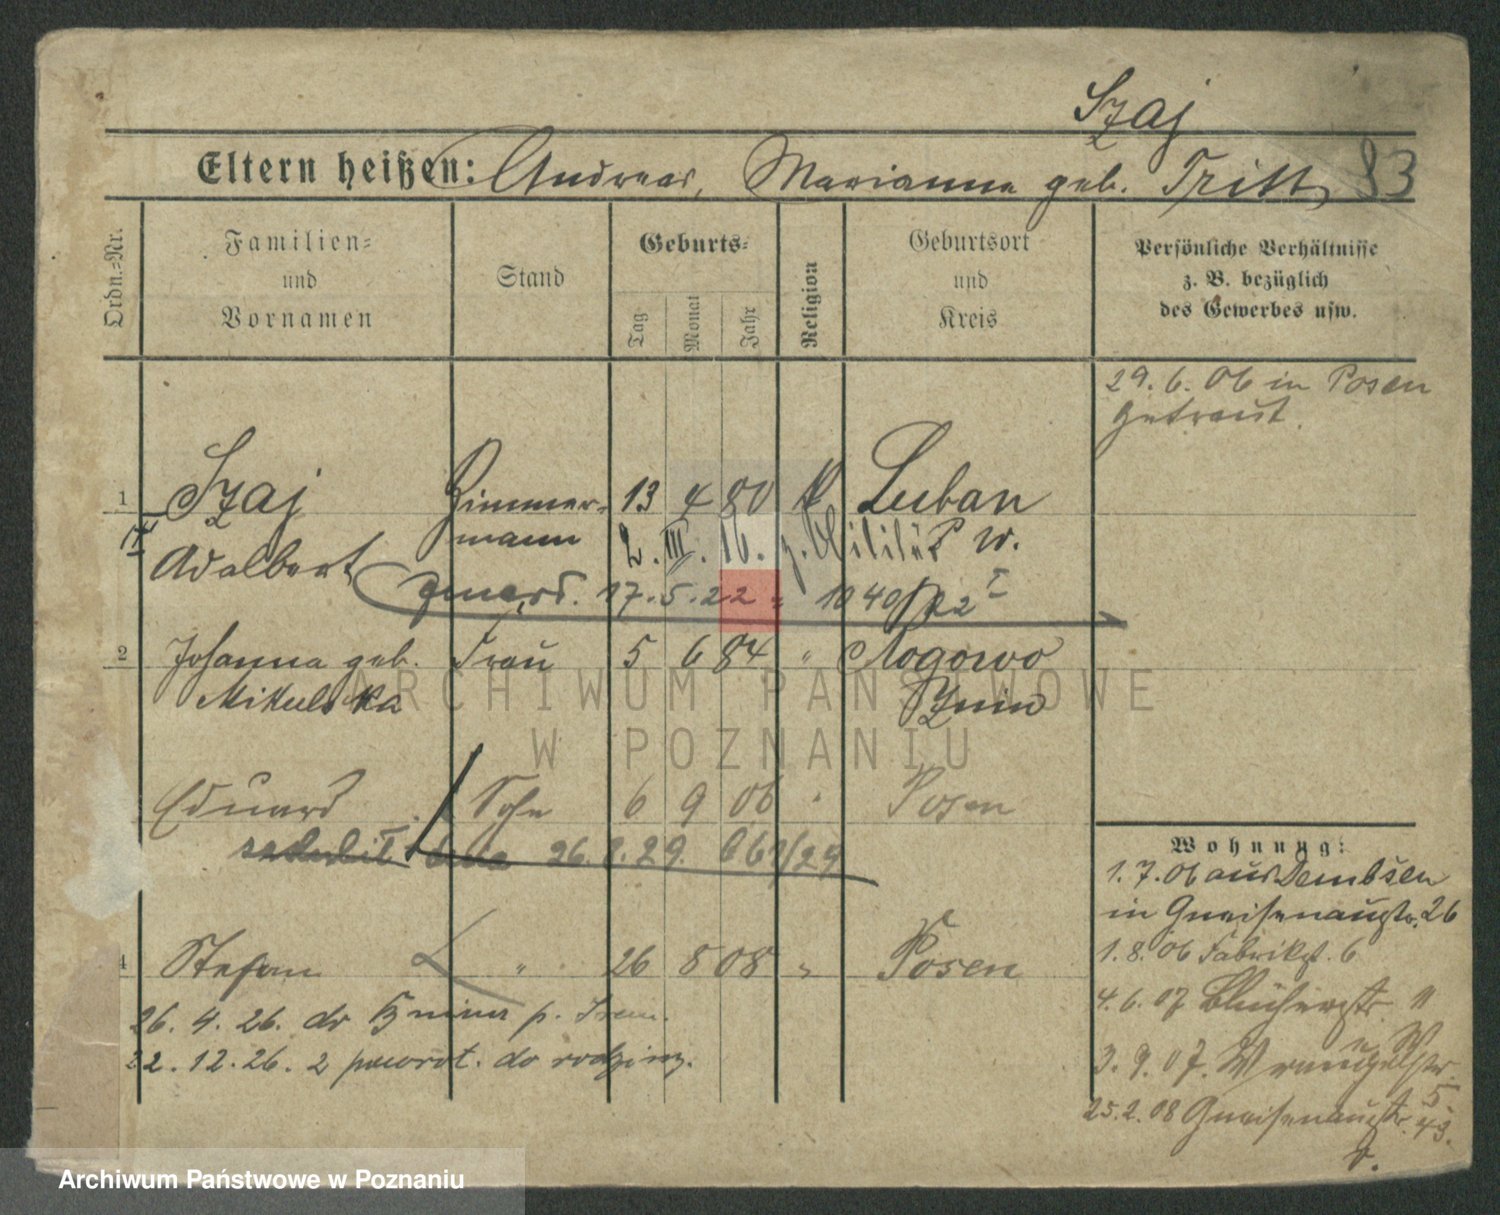 Szaj
Eltern heißen: Andreas, Marianna geb. Tritt 83
Ordn.-Nr.
Familien-
und
Vornamen
Stand
Geburts-
Tag
Monat
Jahr
Religion
Geburtsort
und
Kreis
Persönliche Verhältnisse
z. B. bezüglich
des Gewerbes usw.
29. 6. 06 in Posen
getraut.
1 Szaj Zimmer- 13 4 80 k Luban
Adalbert mann 2. III. 16. z. Militär P. W.
17. 5. 22
2 Johanna geb. Frau 5 6 84 " Rogowo
Mikulska Znin
Eduard Sohn 6 9 06 " Posen
26. 29. 29
4 Stefan " 26 8 08 " Posen
26. 4. 26. do
22. 12. 26. z powrot. do rodziny.
Wohnung:
1. 7. 06 aus Dembsen
in Gneisenaustr. 26
1. 8. 06 Fabrikst. 6
4. 6. 07 Blücherstr. 11
3. 9. 07. Wrangelstr.
5
25. 2. 08 Gneisenaustr. 43.
ARCHIWUM PAŃSTWOWE
W POZNANIU
Archiwum Państwowe w Poznaniu